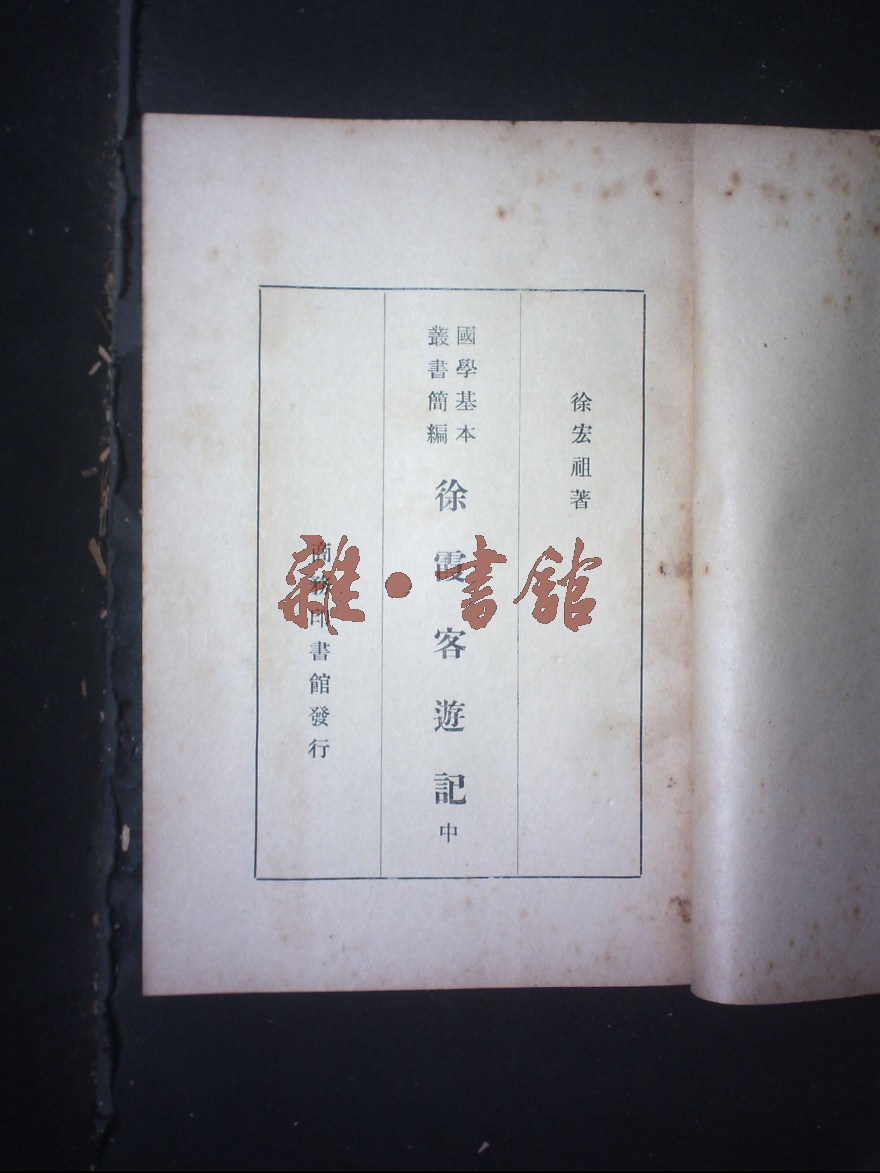 徐宏祖著
國學基本
叢書簡編
徐霞客遊記中
商務印書館發行
雜·書館